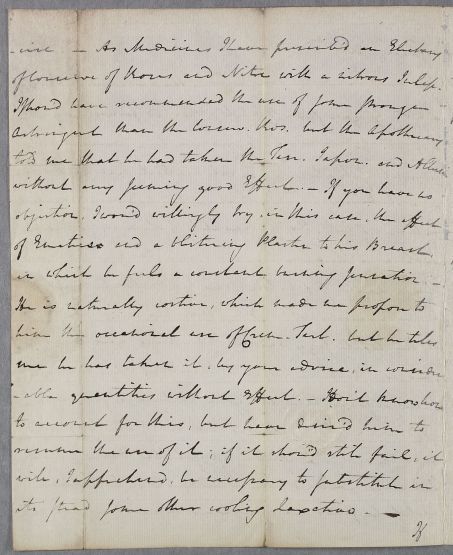 -cise — As Medicines I have prescrib'd an Electuary
of Conserve of Roses and Nitre with a nitrous Julep.
I should have recommended the use of some stronger
Astringent than the Conserv. Ros. but the Apothecary
told me that he had taken the Terr. Japon. and
without any seeming good Effect. — If you have no
objection, I would willingly try, in this case, the effect
of Emetics and a blistering Plaster to his Breast,
in which he feels a constant burning sensation. —
He is naturally costive, which made me propose to
him the occasional use of Crem. Tart. but he tells
me he has taken it, by your advice, in consider
-able quantities without Effect. — I don't know how
to account for this, but have desir'd him to
resume the use of it; if it shou'd still fail, it
will, I apprehend, be necessary to substitute in
its stead some other cooling Laxative. —